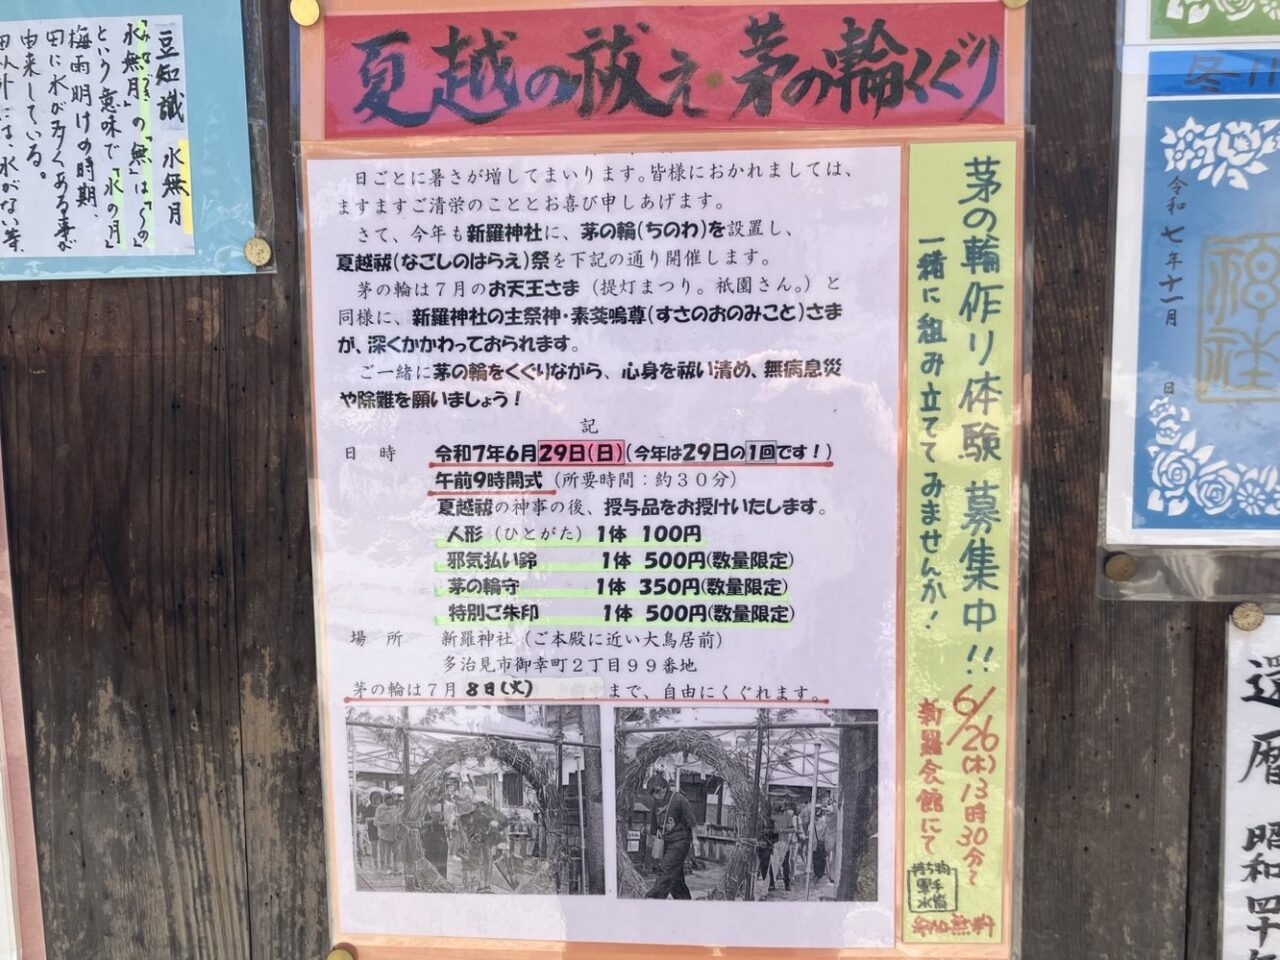 夏越の祓え・茅の輪くぐり
日ごとに暑さが増してまいります。皆様におかれましては、
ますますご清栄のこととお喜び申しあげます。
さて、今年も新羅神社に、茅の輪(ちのわ)を設置し、
夏越祓(なごしのはらえ)祭を下記の通り開催します。
茅の輪は７月のお天王さま（提灯まつり。祇園さん。）と
同様に、新羅神社の主祭神・素戔嗚尊(すさのおのみこと)さま
が、深くかかわっておられます。
ご一緒に茅の輪をくぐりながら、心身を祓い清め、無病息災
や除難を願いましょう！
記
日　時　令和7年6月29日(日)(今年は29日の1回です！)
午前9時開式（所要時間：約３０分）
夏越祓の神事の後、授与品をお授けいたします。
人形（ひとがた）1体　100円
邪気払い鈴　1体　500円(数量限定)
茅の輪守　1体　350円(数量限定)
特別ご朱印　1体　500円(数量限定)
場　所　新羅神社（ご本殿に近い大鳥居前）
多治見市御幸町２丁目９９番地
茅の輪は７月8日(火)まで、自由にくぐれます。
茅の輪作り体験 募集中!!
一緒に組み立ててみませんか！
6/26(木)13時30分〜
新羅会館にて
持ち物
軍手
水筒
参加無料
豆知識 水無月
水無月の「無」は「の」
という意味で「水の月」
梅雨明けの時期、
田に水が多くある事が
由来している。
田以外には、水がない等、
令和七年十一月
日
還暦 昭和四十